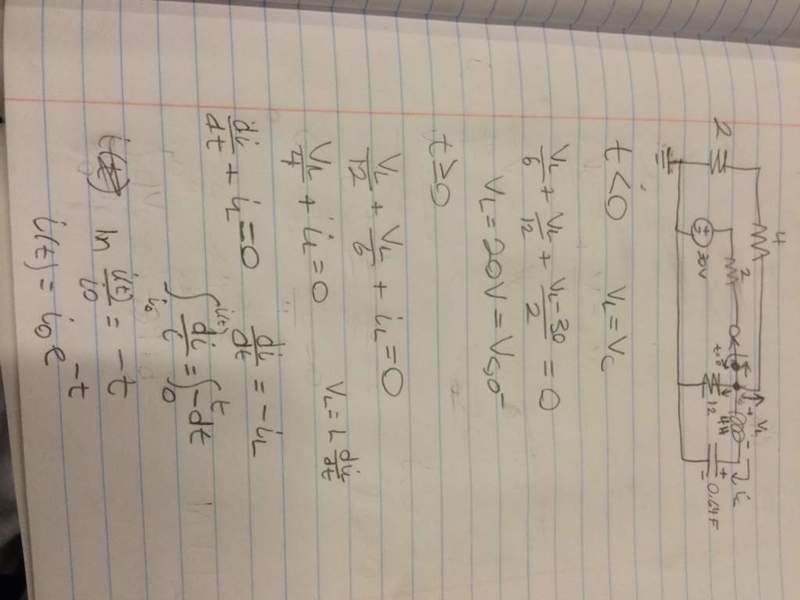 4
2
2
30V
t=0
12
4H
+ VL -
iL
+
-
0.64F
t<0 VL = Vc
VL/6 + VL/12 + (VL-30)/2 = 0
VL = 20V = Vc,0-
t≥0
VL/12 + VL/6 + iL = 0
VL/4 + iL = 0 VL = L diL/dt
diL/dt + iL = 0 diL/dt = -iL
∫_{i0}^{i(t)} diL/i = ∫_0^t -dt
ln i(t)/i0 = -t
i(t) = i0 e^-t